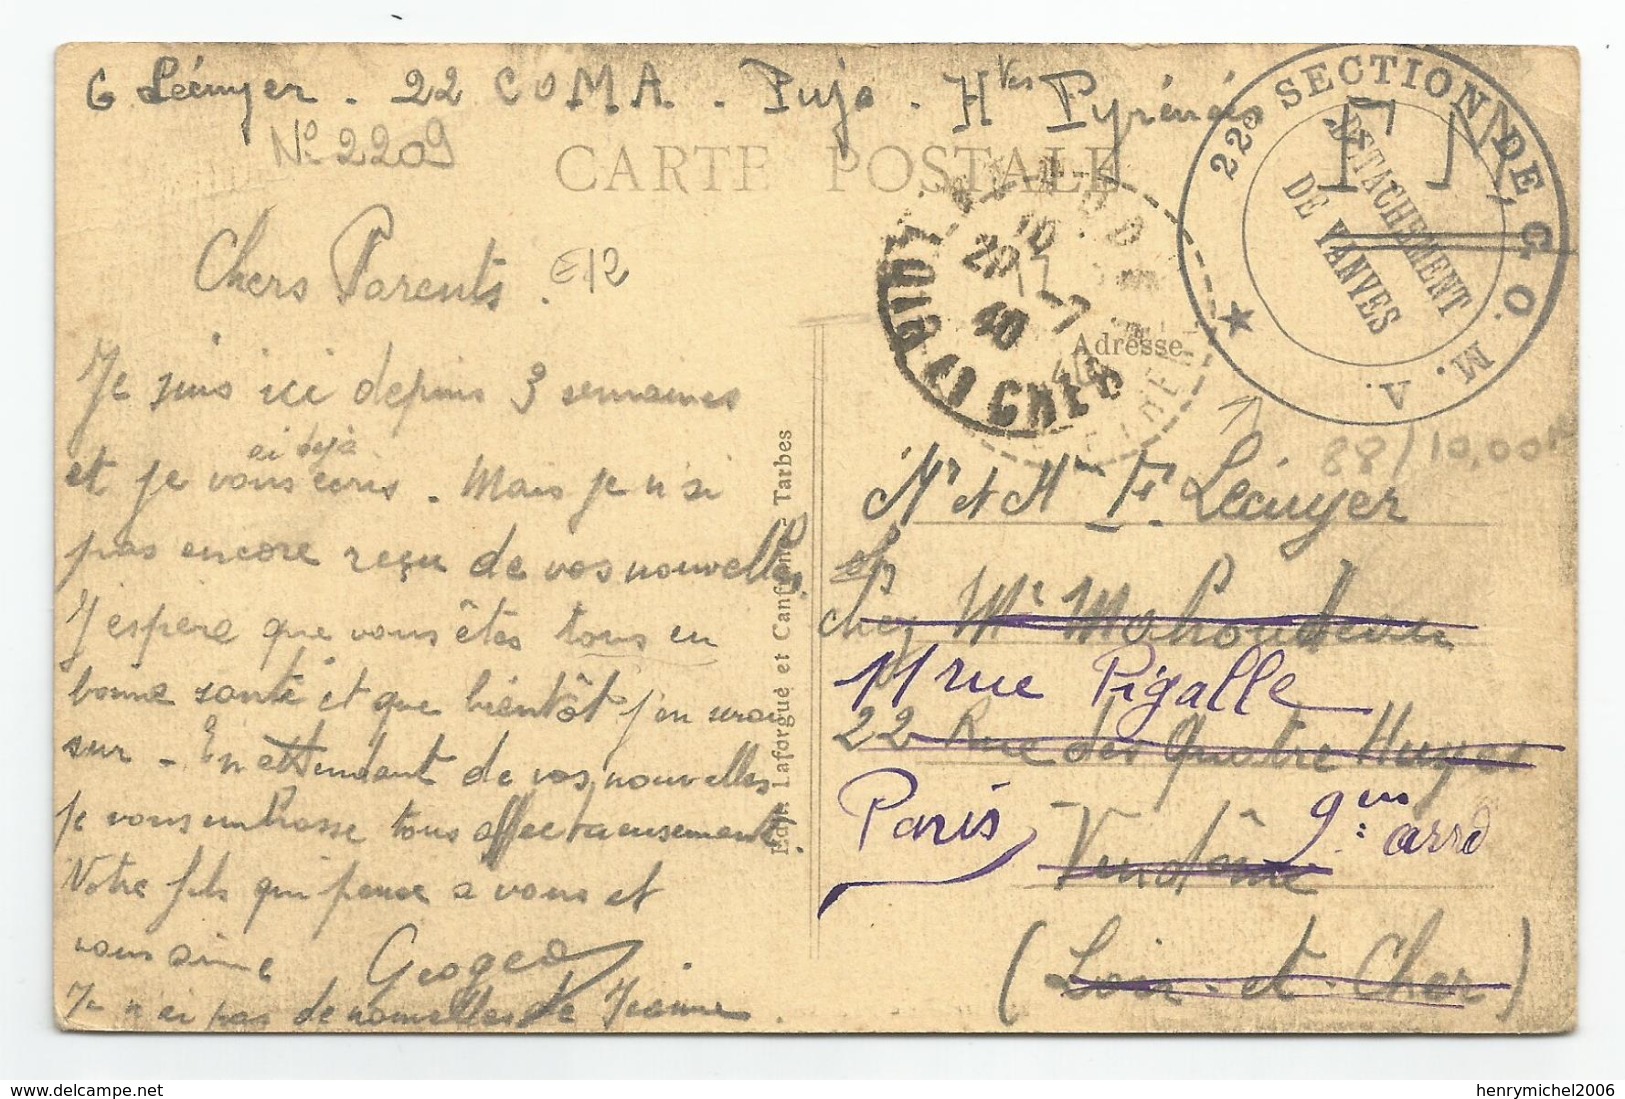 G Lécuyer. 22 COMA. Pujo. Htes Pyrénées
No 2209
CARTE POSTALE
F M
22e SECTION DE C. O. M. A.
DETACHEMENT
DE VANVES
LOIR ET CHER
20 -7
40
Chers Parents. E12
Je suis ici depuis 3 semaines
ai déjà
et je vous écris. Mais je n'ai
pas encore reçu de vos nouvelles
J'espère que vous êtes tous en
bonne santé et que bientôt j'en serai
sur. En attendant de vos nouvelles
je vous embrasse tous affectueusement.
Votre fils qui pense a vous et
vous aime Georges
Je n'ai pas de nouvelles de Jeanne.
Laforgue et Tarbes
Adresse
88/10,00
Mr et Mme F. Lécuyer
chez Mr
11 rue Pigalle
22 Rue des Quatre Huyes
Paris 9me arrd
Vendôme
(Loir-et-Cher)
delcampe.net
henrymichel2006